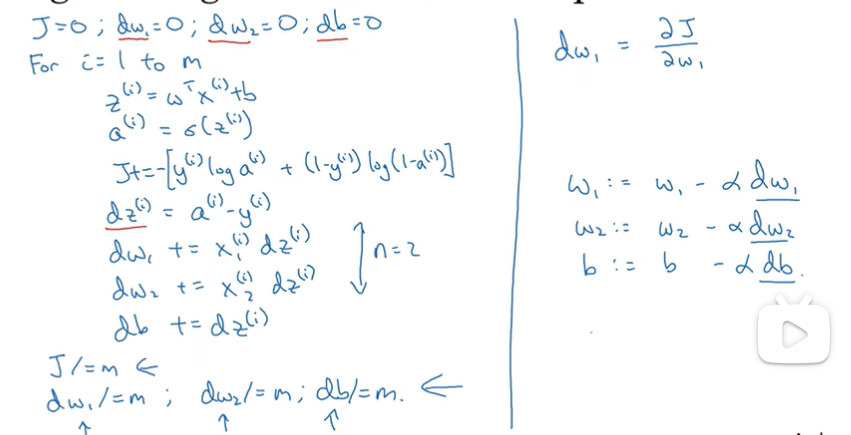 J=0 ; dw₁=0 ; dw₂=0 ; db=0
For i=1 to m
z⁽ⁱ⁾ = ωᵀx⁽ⁱ⁾+b
a⁽ⁱ⁾ = σ(z⁽ⁱ⁾)
J+=-[y⁽ⁱ⁾ log a⁽ⁱ⁾ + (1-y⁽ⁱ⁾) log(1-a⁽ⁱ⁾)]
dz⁽ⁱ⁾ = a⁽ⁱ⁾-y⁽ⁱ⁾
dw₁ += x₁⁽ⁱ⁾ dz⁽ⁱ⁾
dw₂ += x₂⁽ⁱ⁾ dz⁽ⁱ⁾
n=2
db += dz⁽ⁱ⁾
J/=m ←
dw₁/=m ; dw₂/=m ; db/=m. ←
↑ ↑ ↑
dw₁ = ∂J/∂w₁
w₁ := w₁ - α dw₁
w₂ := w₂ - α dw₂
b := b - α db.